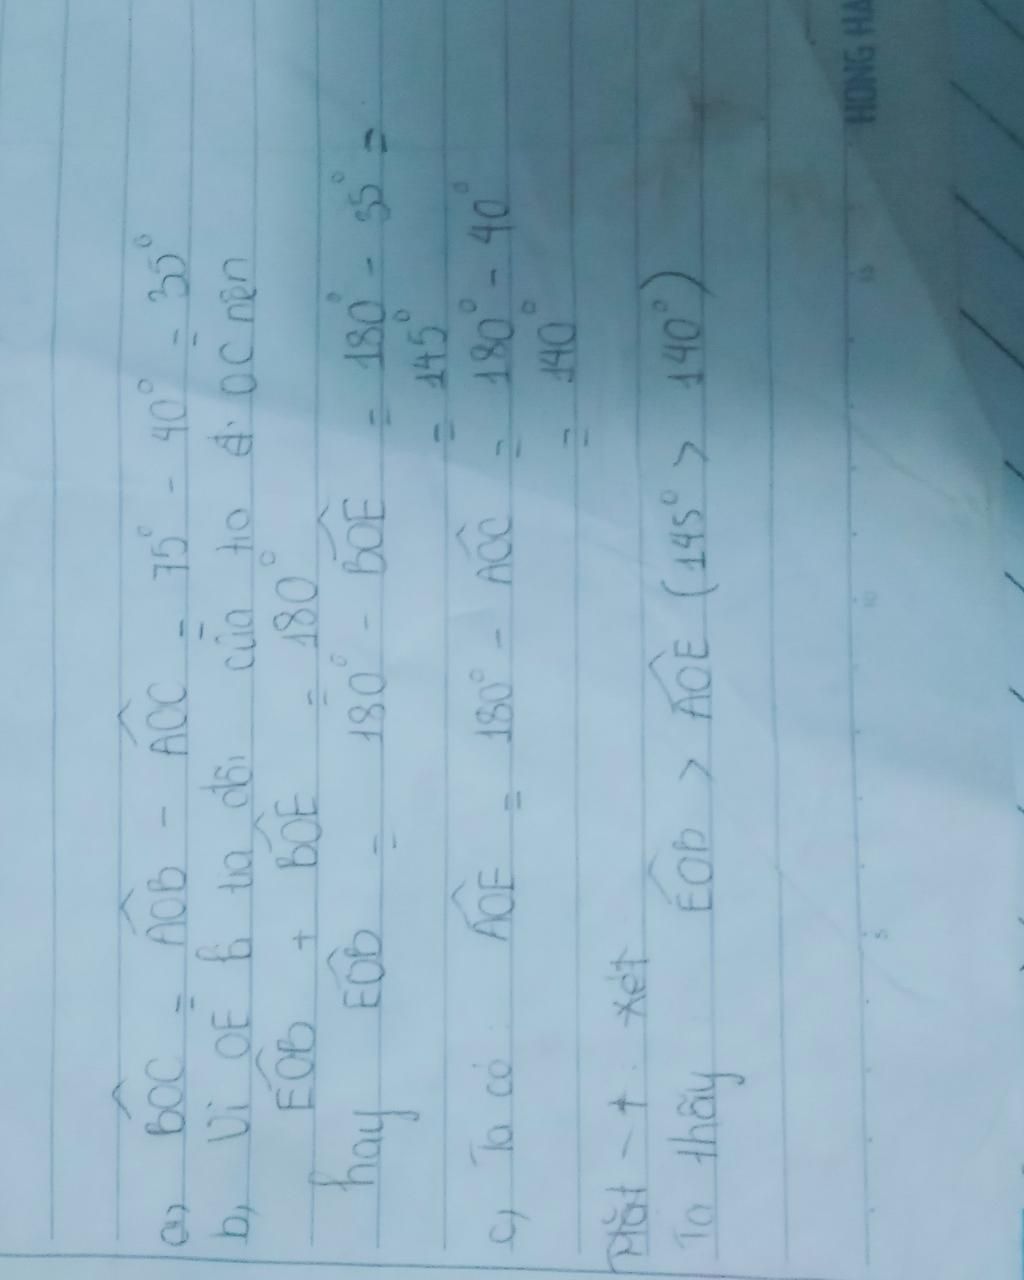 a, BÔC = AÔB - AÔC = 75° - 40° = 35°
b, Vì OE là tia đối của tia OC nên
EÔB + BÔE = 180°
hay EÔB = 180° - BÔE = 180° - 35° =
= 145°
c, Ta có: AÔE = 180° - AÔC = 180° - 40°
= 140°
Mặt - t xét
Ta thấy EÔB > AÔE (145° > 140°)
5
10
15
HONG HA